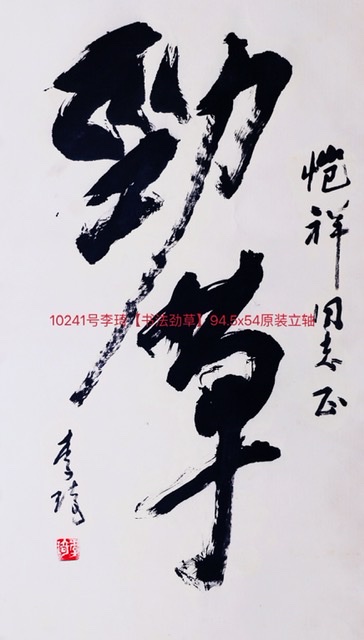 劲草
恺祥同志正
10241号李琦【书法劲草】94.5x54原装立轴
李琦